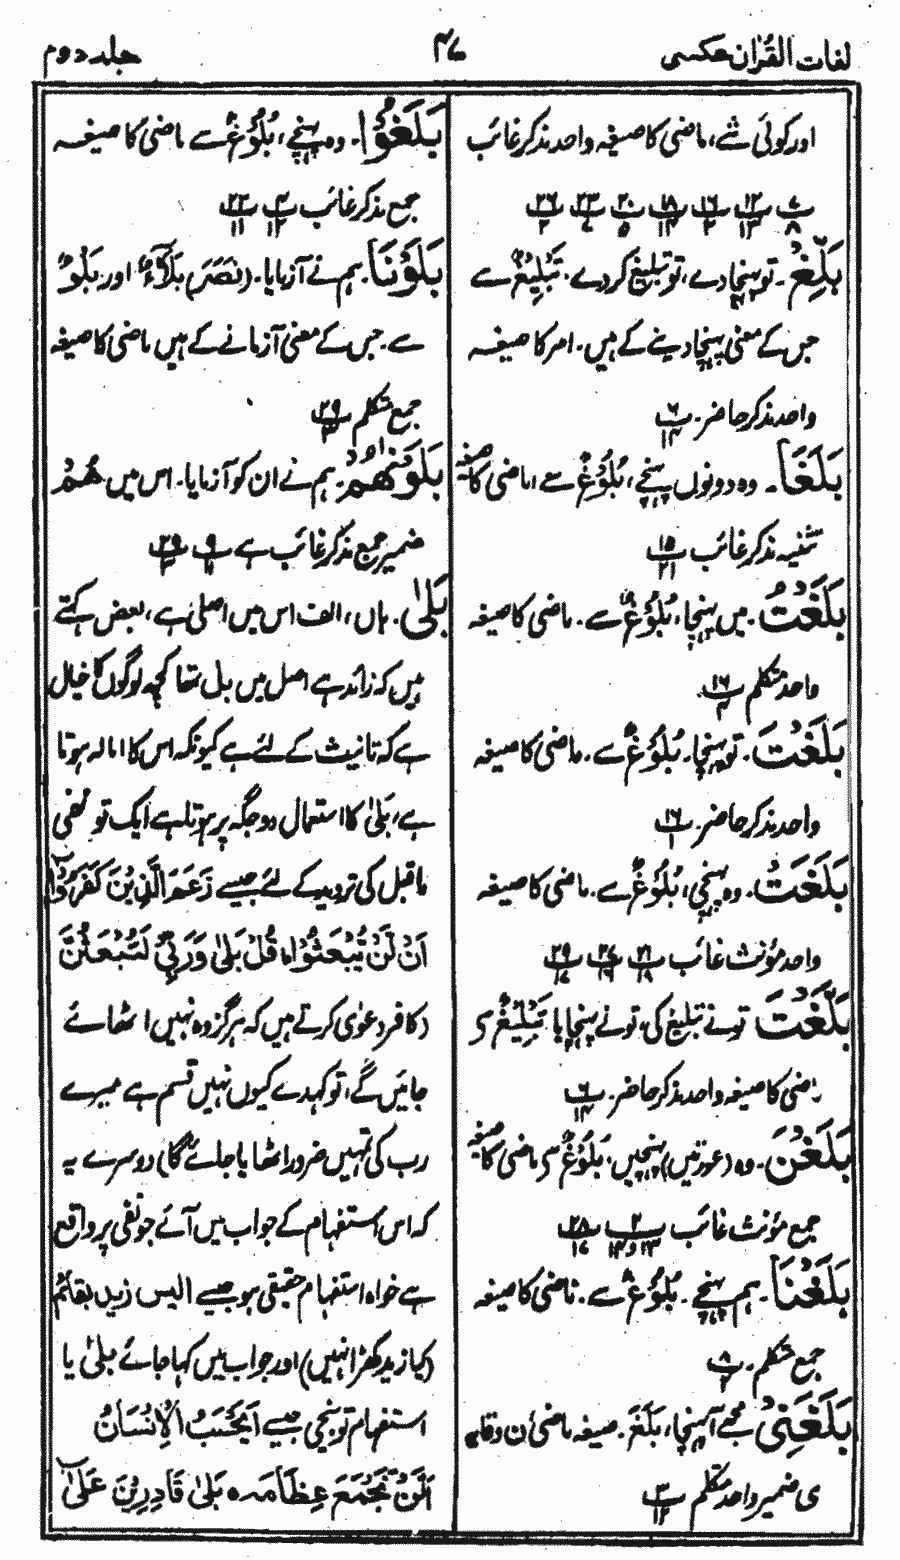 لغات القرآن عکسی
۴۷
جلد دوم
اور کوئی شے، ماضی کا صیغہ واحد مذکر غائب
بَلِّغْ۔ تو پہنچا دے، تو تبلیغ کر دے۔ تَبْلِیْغٌ سے
جس کے معنی پہنچا دینے کے ہیں۔ امر کا صیغہ
واحد مذکر حاضر۔
بَلَغَا۔ وہ دونوں پہنچے، بُلُوْغٌ سے، ماضی کا صیغہ
تثنیہ مذکر غائب
بَلَغْتُ۔ میں پہنچا، بُلُوْغٌ سے۔ ماضی کا صیغہ
واحد متکلم
بَلَغْتَ۔ تو پہنچا۔ بُلُوْغٌ سے۔ ماضی کا صیغہ
واحد مذکر حاضر۔
بَلَغَتْ۔ وہ پہنچی، بُلُوْغٌ سے۔ ماضی کا صیغہ
واحد مؤنث غائب
بَلَّغْتَ تو نے تبلیغ کی، تو نے پہنچایا تَبْلِیْغٌ سی
ماضی کا صیغہ واحد مذکر حاضر۔
بَلَغْنَ۔ وہ (عورتیں) پہنچیں۔ بُلُوْغٌ سی ماضی کا صیغہ
جمع مؤنث غائب
بَلَغْنَا۔ ہم پہنچے۔ بُلُوْغٌ سے۔ ماضی کا صیغہ
جمع متکلم۔
بَلَغَنِیْ مجھے آ پہنچا، بَلَغَ۔ صیغہ ماضی ن وقایہ
ی ضمیر واحد متکلم
بَلَغُوْا۔ وہ پہنچے، بُلُوْغٌ سے ماضی کا صیغہ
جمع مذکر غائب
بَلَوْنَا۔ ہم نے آزمایا۔ (نَصَرَ) بَلَاءٌ اور بَلْوٌ
سے۔ جس کے معنی آزمانے کے ہیں ماضی کا صیغہ
جمع متکلم
بَلَوْنٰهُمْ ہم نے ان کو آزمایا۔ اس میں هُمْ
ضمیر جمع مذکر غائب ہے
بَلٰی۔ ہاں، الف اس میں اصلی ہے، بعض کہتے
ہیں کہ زائد ہے اصل میں بل تھا کچھ لوگوں کا خیال
ہے کہ تانیث کے لئے ہے کیونکہ اس کا امالہ ہوتا
ہے، بَلٰی کا استعمال دو جگہ پر ہوتا ہے ایک تو نفی
ماقبل کی تردید کے لئے جیسے زَعَمَ الَّذِیْنَ کَفَرُوْا
اَنْ لَّنْ یُّبْعَثُوْا قُلْ بَلٰی وَرَبِّیْ لَتُبْعَثُنَّ
(کافر دعوٰی کرتے ہیں کہ ہرگز وہ نہیں اٹھائے
جائیں گے، تو کہدے کیوں نہیں قسم ہے میرے
رب کی تمہیں ضرور اٹھایا جائے گا) دوسرے یہ
کہ اس استفہام کے جواب میں آئے جو نفی پر واقع
ہے خواہ استفہام حقیقی ہو جیسے الیس زید بقائم
(کیا زید کھڑا نہیں) اور جواب میں کہا جائے بلٰی یا
استفہام توبیخی جیسے اَیَحْسَبُ الْاِنْسَانُ
اَلَّنْ نَّجْمَعَ عِظَامَہٗ بَلٰی قَادِرِیْنَ عَلٰی